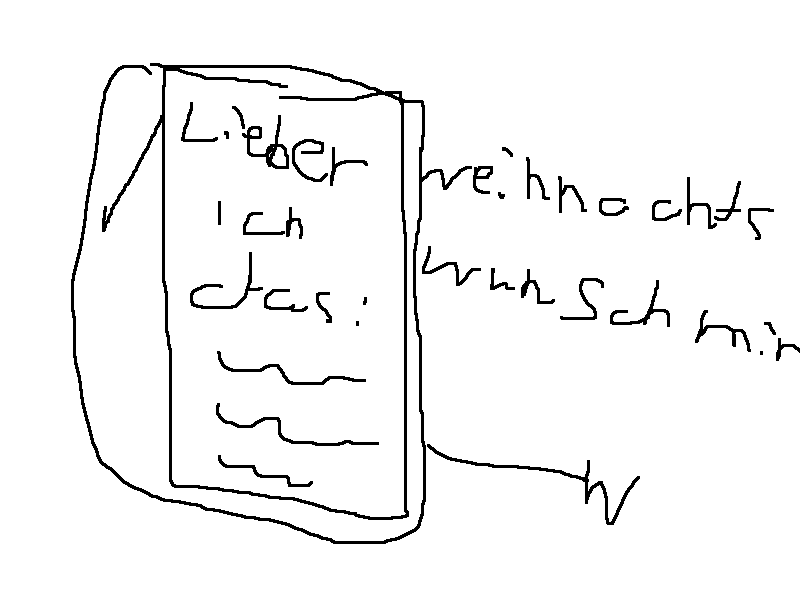 Lieber weihnachts
ich wunsch mir
das:
W